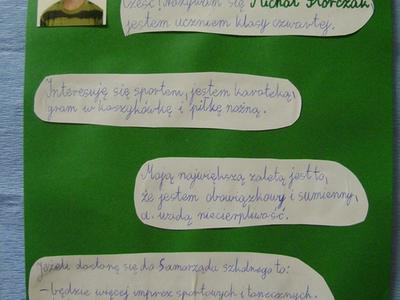 Cześć, nazywam się Michał
jestem uczniem klasy czwartej.
Interesuję się sportem, jestem karateką,
gram w koszykówkę i piłkę nożną.
Moją największą zaletą jest to,
że jestem obowiązkowy i sumienny,
a wadą niecierpliwość.
Jeżeli dostanę się do Samorządu szkolnego to:
- będzie więcej imprez sportowych i tanecznych